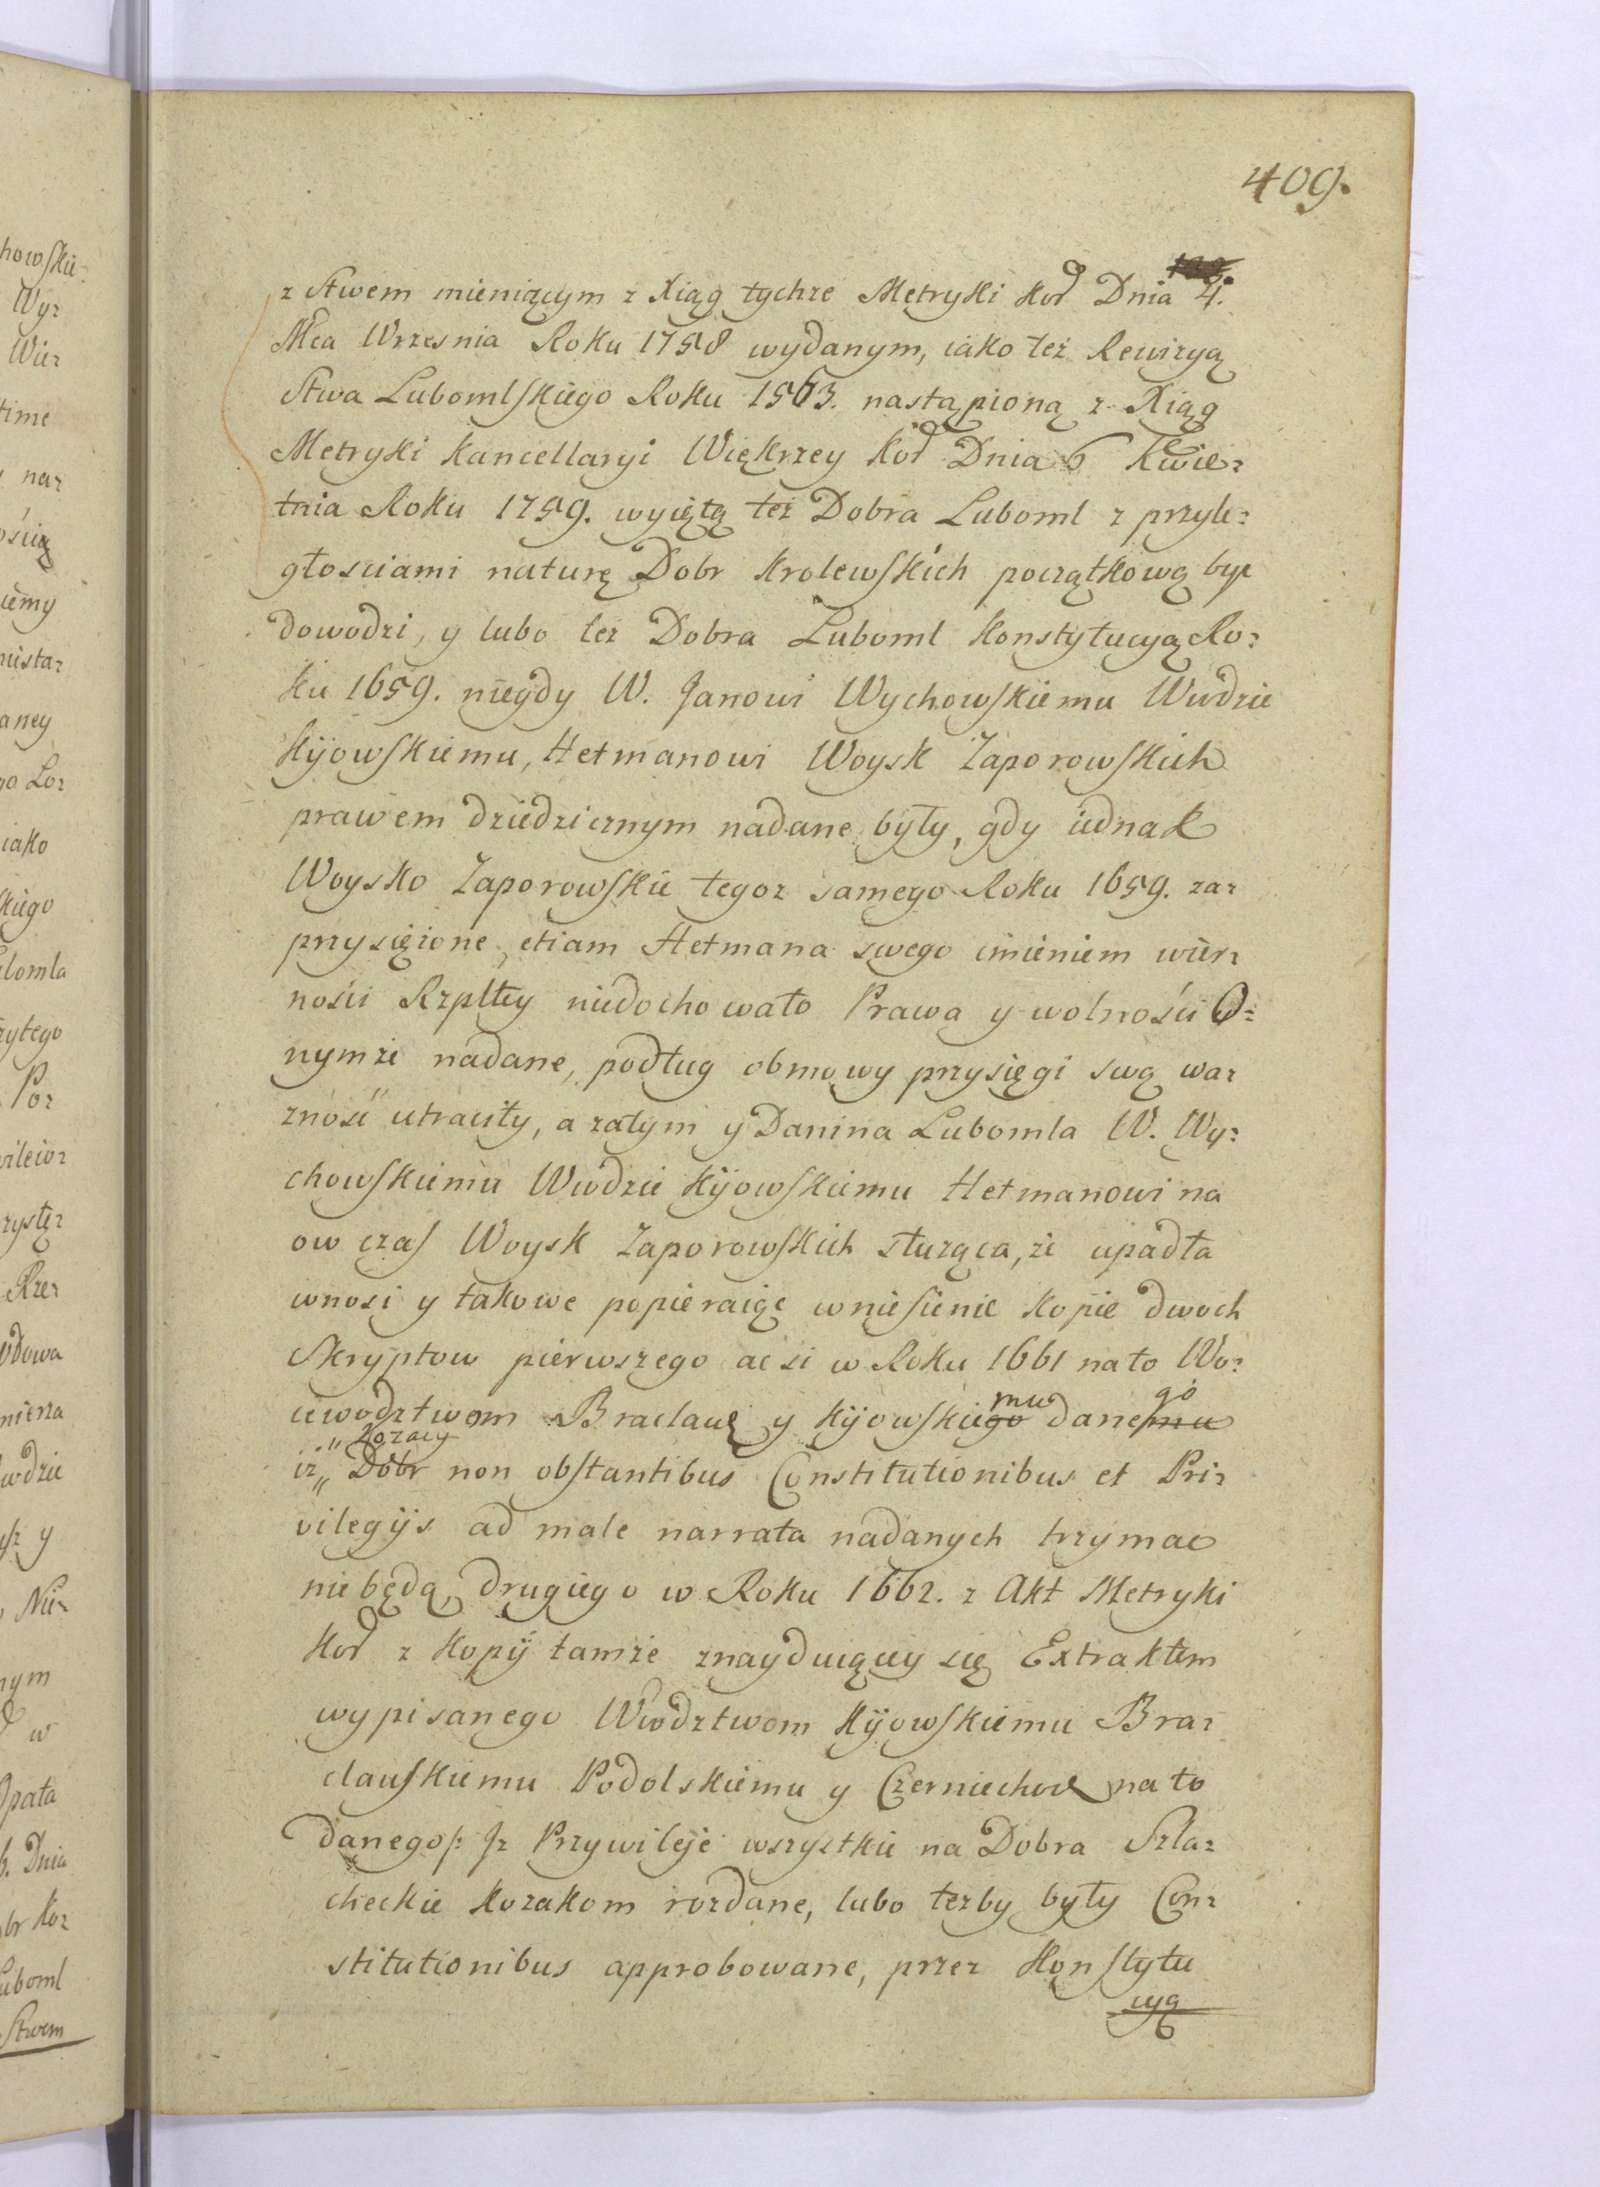 409.
z Stwem mieniącym z Xiąg tychze Metryki Kor Dnia 4.
Mca Wrzesnia Roku 1758 wydanym, iako też Rewizyą
Stwa Lubomlskiego Roku 1563. nastąpioną z Xiąg
Metryki Kancellaryi Więkrzey Kor Dnia 6 Kwie:
tnia Roku 1759. wyiętą też Dobra Luboml z przyle:
głosciami naturę Dobr Krolewskich początkową byc
dowodzi, y lubo też Dobra Luboml Konstytucyą Ro:
ku 1659. niegdy W. Janowi Wychowskiemu Wwdzie
Kijowskiemu, Hetmanowi Woysk Zaporowskich
prawem dziedzicznym nadane były, gdy iednak
Woysko Zaporowskie tegoz samego Roku 1659. za:
przysięzone, etiam Hetmana swego imieniem wier:
ności Rzpltey niedochowało Prawa y wolności O:
nymże nadane, podług obmowy przysięgi swą wa:
zność utraciły, a zatym y Danina Lubomla W. Wy:
chowskiemu Wwodzie Kijowskiemu Hetmanowi na
ow czas Woysk Zaporowskich służąca, że upadła
wnosi y takowe popieraiąc wniesienie kopie dwoch
Skryptow pierwszego ac si w Roku 1661 na to Wo:
iewodztwom Braclaw y Kijowskiego mu danemu go
iż Dobr Kozacy non obstantibus Constitutionibus et Pri:
vilegijs ad male narrata nadanych trzymac
nie będą, drugiego w Roku 1662. z Akt Metryki
Kor z Kopij tamże znayduiącey się Extraktem
wypisanego Wwodztwom Kijowskiemu Bra:
clauskiemu Podolskiemu y Czerniechow na to
danego /: Jż Przywileje wszystkie na Dobra Szla:
checkie Kozakom rozdane, lubo teżby były Con:
stitutionibus approbowane, przez Konstytu
cyą
howskie
Wy:
Wie:
time
na:
ością
iemy
nista:
aney
go Lo:
iako
skiego
ubomla
zytego
Po:
wileio:
zystę:
Rze:
wdzie
y
Nie:
nym
w
Opata
Dnia
br Ko:
Luboml
Stwem